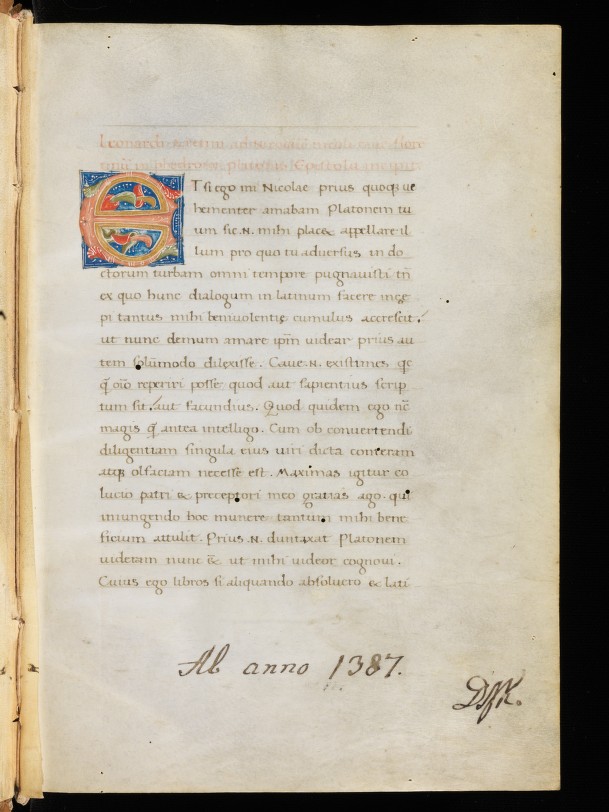 Leonardi
Epistola incipit
ET si ego mi Nicolae prius quoq; ue
hementer amabam Platonem tu
um sic .N. mihi place& appellare il
lum pro quo tu aduersus in do
ctorum turbam omni tempore pugnauisti tñ
ex quo hunc dialogum in latinum facere incę
pi tantus mihi beniuolentię cumulus accrescit,
ut nunc demum amare ip̄m uidear prius au
tem solūmodo dilexisse. Caue .N. existimes
q̄ oīo reperiri posse quod aut sapientius scrip
tum sit, aut facundius. Quod quidem ego nc̄
magis q̄ antea intelligo. Cum ob conuertendi
diligentiam singula eius uiri dicta conteram
atq; olfaciam necesse est. Maximas igitur co
lucio patri & preceptori meo gratias ago. qui
iniungendo hoc munere tantum mihi bene
ficium attulit. Prius .N. duntaxat Platonem
uideram nunc ē& ut mihi uideor cognoui.
Cuius ego libros si aliquando absoluero & lati
Ab anno 1387.